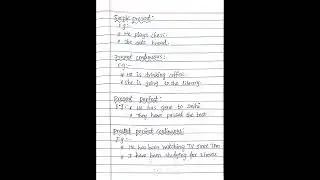 Simple present:
E.g:-
• He plays chess.
• She eats bread.
Present continuous:
E.g:-
• He is drinking coffee.
• She is going to the library.
Present perfect:
E.g:-
• He has gone to
• They have passed the test
Present perfect continuous:
E.g:-
• He has been watching TV since 7pm
• I have been studying for 2 hours